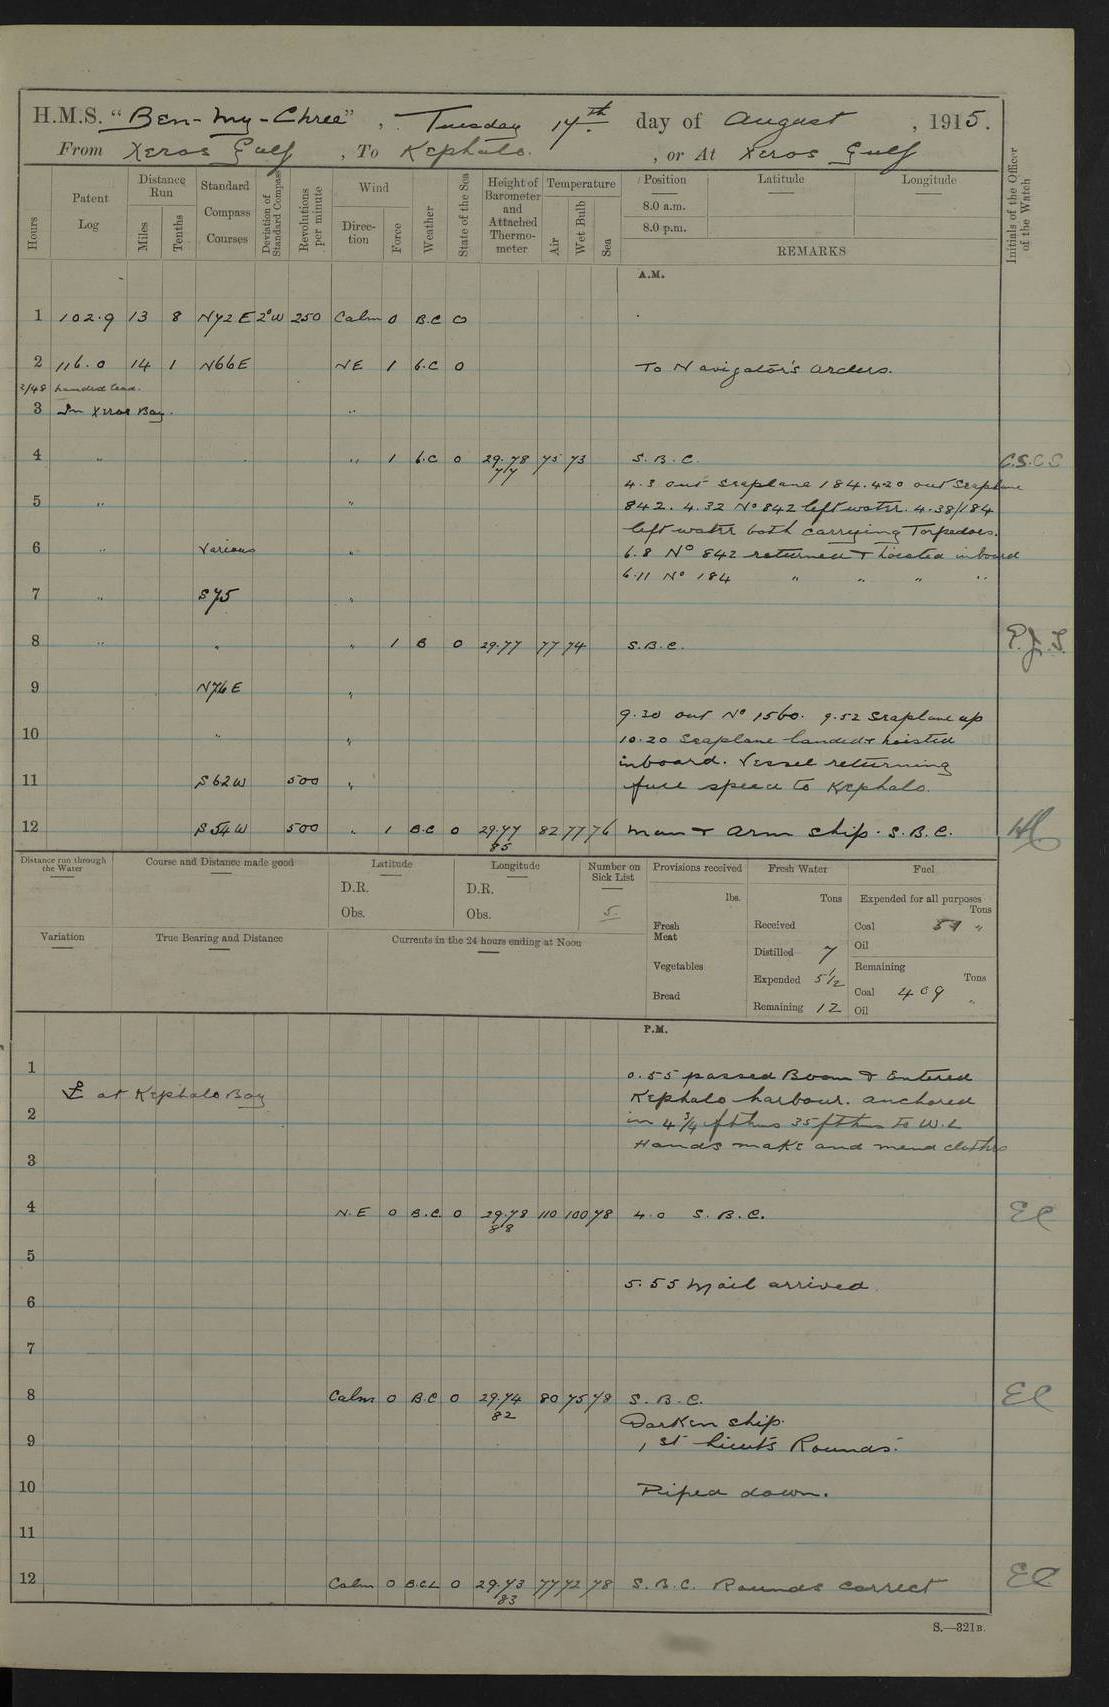 H.M.S. "Ben-my-Chree", Tuesday 17th day of August, 1915.
From Xeros Gulf, To Kephalo. , or At Xeros Gulf
Hours
Patent Log
Distance Run
Miles
Tenths
Standard Compass Courses
Deviation of Standard Compass
Revolutions per minute
Wind
Direction
Force
Weather
State of the Sea
Height of Barometer and Attached Thermometer
Temperature
Air
Wet Bulb
Sea
Position
Latitude
Longitude
8.0 a.m.
8.0 p.m.
REMARKS
Initials of the Officer of the Watch
A.M.
1 102.9 13 8 N72E 2°W 250 Calm 0 B.C 0
2 116.0 14 1 N66E NE 1 b.c 0 To Navigator's orders.
2/48 handed lead.
3 In Xeros Bay. "
4 " " 1 b.c 0 29.78 75 73 S.B.C. C.S.C.S
77
4.3 out seaplane 184. 4.20 out Seaplane
5 " " 842. 4.32 No 842 left water. 4.38/184
left water both carrying Torpedoes.
6 " Various " 6.8 No 842 returned & hoisted inboard
6.11 No 184 " " " "
7 " S75 "
8 " " " 1 B 0 29.77 77 74 S.B.C.
9 N76E "
9.20 out No 1560. 9.52 Seaplane up
10 " " 10.20 Seaplane landed & hoisted
inboard. Vessel returning
11 S62W 500 " full speed to Kephalo.
12 S54W 500 " 1 B.C 0 29.77 82 77 76 Man & Arm ship. S.B.C.
85
Distance run through the Water
Course and Distance made good
Latitude
Longitude
Number on Sick List
Provisions received
Fresh Water
Fuel
D.R.
D.R.
lbs.
Tons
Expended for all purposes
Tons
Obs.
Obs.
5.
Fresh Meat
Received
Coal "
Oil
Variation
True Bearing and Distance
Currents in the 24 hours ending at Noon
Distilled 7
Vegetables
Remaining
Tons
Expended 5 1/2
Bread
Coal 409 "
Remaining 12
Oil
P.M.
1 0.55 passed Boom & Entered
at Kephalo Bay Kephalo harbour. anchored
2 in 4 3/4 fthms 35 fthms to W.L
Hands make and mend clothes
3
4 N.E 0 B.C. 0 29.78 110 100 78 4.0 S.B.C. EC
88
5
5.55 Mail arrived
6
7
8 Calm 0 B.C 0 29.74 80 75 78 S.B.C. EC
82
Darken ship.
9 1st Lieut's Rounds.
10 Piped down.
11
12 Calm 0 B.C.L 0 29.73 77 72 78 S.B.C. Rounds correct EC
83
S.—321B.